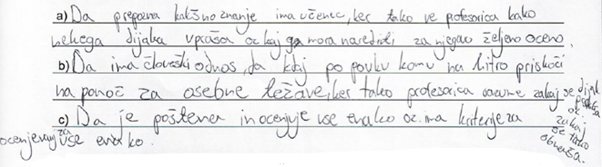 a) Da prepozna kakšno znanje ima učenec, ker tako ve profesorica kako
nekega dijaka vpraša oz kaj ga mora narediti za njegovo željeno oceno.
b) Da ima človeški odnos, da kdaj po pouku komu na hitro priskoči
na pomoč za osebne težave, ker tako profesorica razume zakaj se dijak
oz.
zakaj
se tako
obnaša.
c) Da je poštena in ocenjuje vse enako oz. ima kriterije za
ocenjevanje za vse enako.